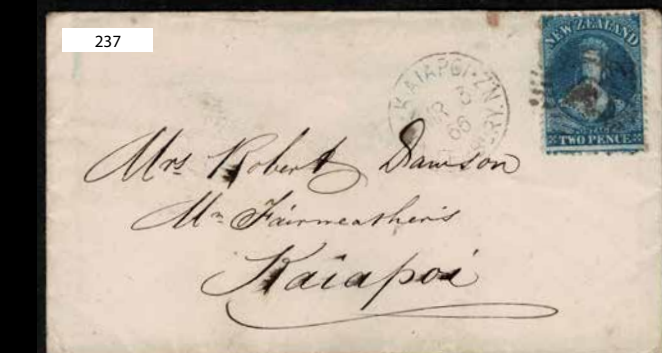 237
NEW ZEALAND
TWO PENCE
KAIAPOI·N.Z
66
Mrs Robert Dawson
Mr Fairweather's
Kaiapoi